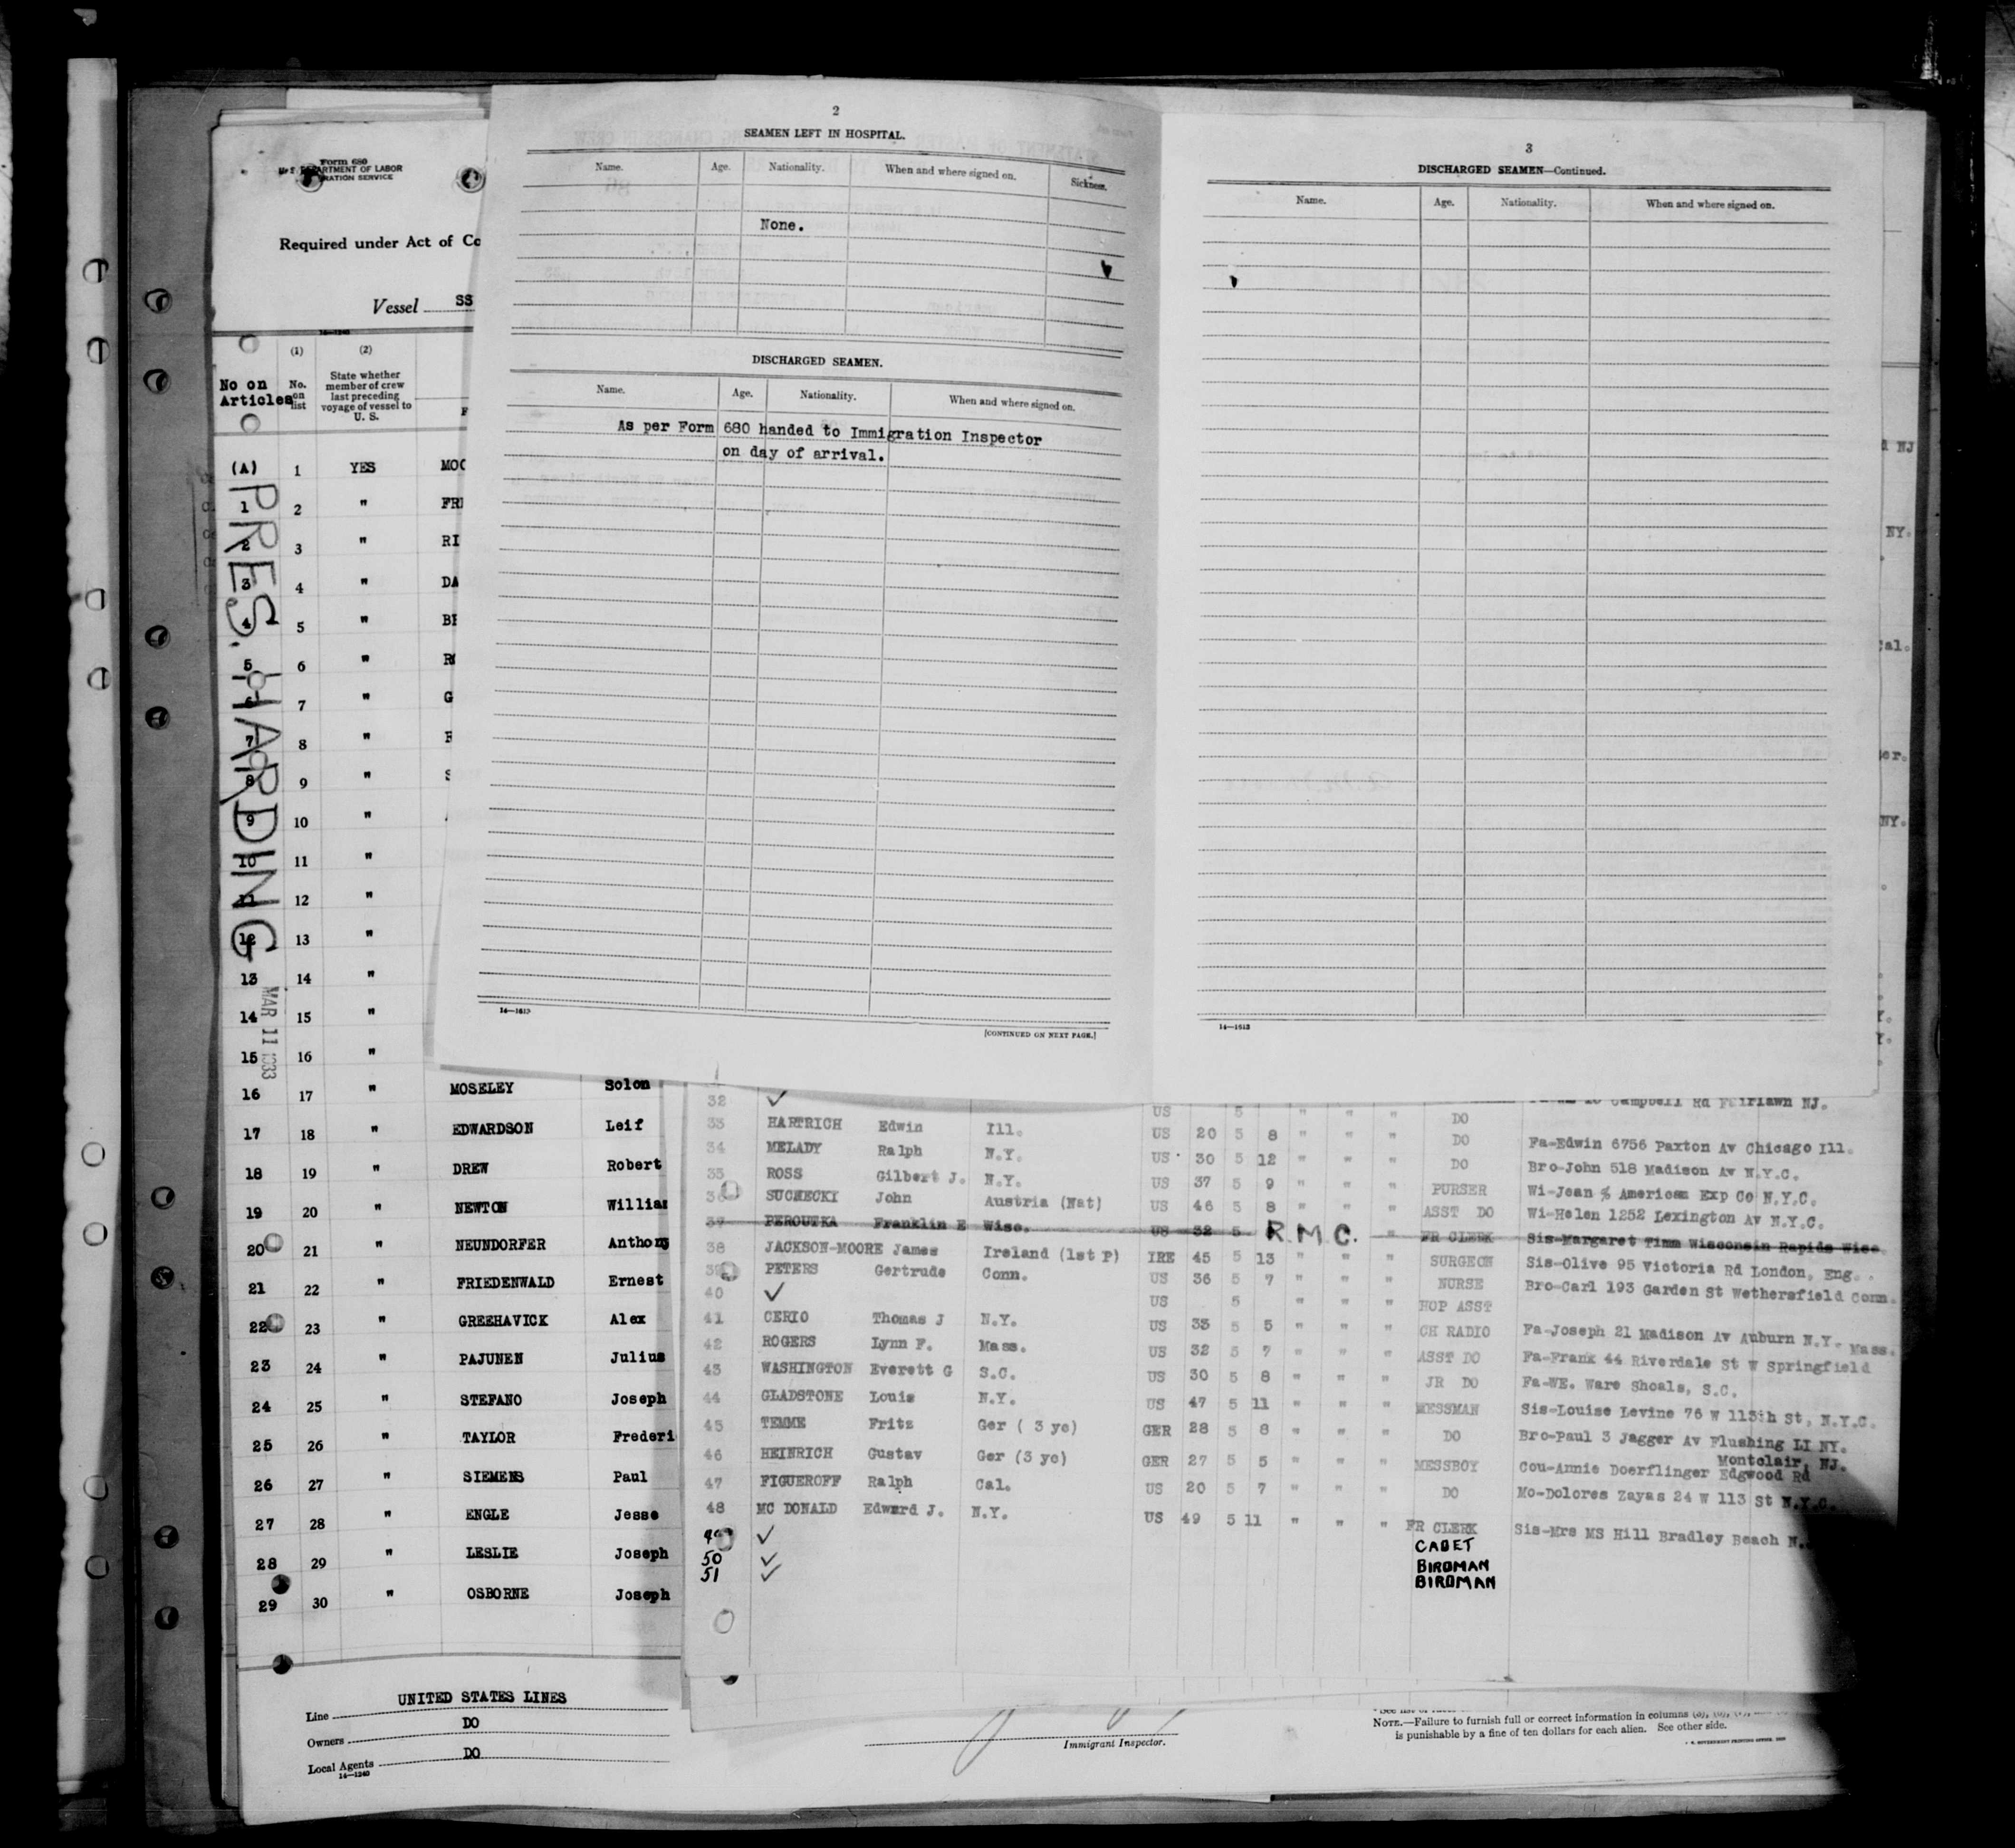 Form 680
DEPARTMENT OF LABOR
Required under Act of
Vessel SS
No on Articles
(1)
No. on list
(2)
State whether member of crew last preceding voyage of vessel to U. S.
(A) 1 YES
1 2 "
2 3 "
3 4 "
4 5 "
5 6 "
6 7 "
7 8 "
8 9 "
9 10 "
10 11 "
11 12 "
12 13 "
13 14 "
14 15 "
15 16 "
16 17 " MOSELEY Solon
17 18 " EDWARDSON Leif
18 19 " DREW Robert
19 20 " NEWTON
20 21 " NEUNDORFER Anthony
21 22 " FRIEDENWALD Ernest
22 23 " GREEHAVICK Alex
23 24 " PAJUNEN Julius
24 25 " STEFANO Joseph
25 26 " TAYLOR Frederi
26 27 " SIEMENS Paul
27 28 " ENGLE Jesse
28 29 " LESLIE Joseph
29 30 " OSBORNE Joseph
PRES. HARDING
MAR 11 1933
Line UNITED STATES LINES
Owners DO
Local Agents DO
14—1240
2
SEAMEN LEFT IN HOSPITAL.
Name. Age. Nationality. When and where signed on. Sickness.
None.
DISCHARGED SEAMEN.
Name. Age. Nationality. When and where signed on.
As per Form 680 handed to Immigration Inspector
on day of arrival.
14—1613
[CONTINUED ON NEXT PAGE.]
3
DISCHARGED SEAMEN—Continued.
Name. Age. Nationality. When and where signed on.
14—1613
32 ✓ US 5 " " " DO Campbell Rd Fairlawn NJ.
33 HARTRICH Edwin Ill. US 20 5 8 " " " DO Fa-Edwin 6756 Paxton Av Chicago Ill.
34 MELADY Ralph N.Y. US 30 5 12 " " " DO Bro-John 518 Madison Av N.Y.C.
35 ROSS Gilbert J. N.Y. US 37 5 9 " " " PURSER Wi-Jean % American Exp Co N.Y.C.
36 SUCHECKI John Austria (Nat) US 46 5 8 " " " ASST DO Wi-Helen 1252 Lexington Av N.Y.C.
37 PEROUTKA Franklin E Wisc. US 32 5 R.M.C. " FR CLERK Sis-Margaret Timm Wisconsin Rapids Wisc
38 JACKSON-MOORE James Ireland (1st P) IRE 45 5 13 " " " SURGEON Sis-Olive 95 Victoria Rd London, Eng.
39 PETERS Gertrude Conn. US 36 5 7 " " " NURSE Bro-Carl 193 Garden St Wethersfield Conn.
40 ✓ US 5 " " " HOP ASST
41 CERIO Thomas J N.Y. US 33 5 5 " " " CH RADIO Fa-Joseph 21 Madison Av Auburn N.Y.
42 ROGERS Lynn F. Mass. US 32 5 7 " " " ASST DO Fa-Frank 44 Riverdale St W Springfield Mass.
43 WASHINGTON Everett G S.C. US 30 5 8 " " " JR DO Fa-WE. Ware Shoals, S.C.
44 GLADSTONE Louis N.Y. US 47 5 11 " " " MESSMAN Sis-Louise Levine 76 W 113th St, N.Y.C.
45 TEMME Fritz Ger ( 3 yc) GER 28 5 8 " " " DO Bro-Paul 3 Jagger Av Flushing LI NY.
46 HEINRICH Gustav Ger (3 yc) GER 27 5 5 " " " MESSBOY Cou-Annie Doerflinger Edgwood Rd Montclair, NJ.
47 FIGUEROFF Ralph Cal. US 20 5 7 " " " DO Mo-Dolores Zayas 24 W 113 St N.Y.C.
48 MC DONALD Edward J. N.Y. US 49 5 11 " " " FR CLERK Sis-Mrs MS Hill Bradley Beach N.
49 ✓ CADET
50 ✓ BIRDMAN
51 ✓ BIRDMAN
Immigrant Inspector.
NOTE.—Failure to furnish full or correct information in columns
is punishable by a fine of ten dollars for each alien. See other side.